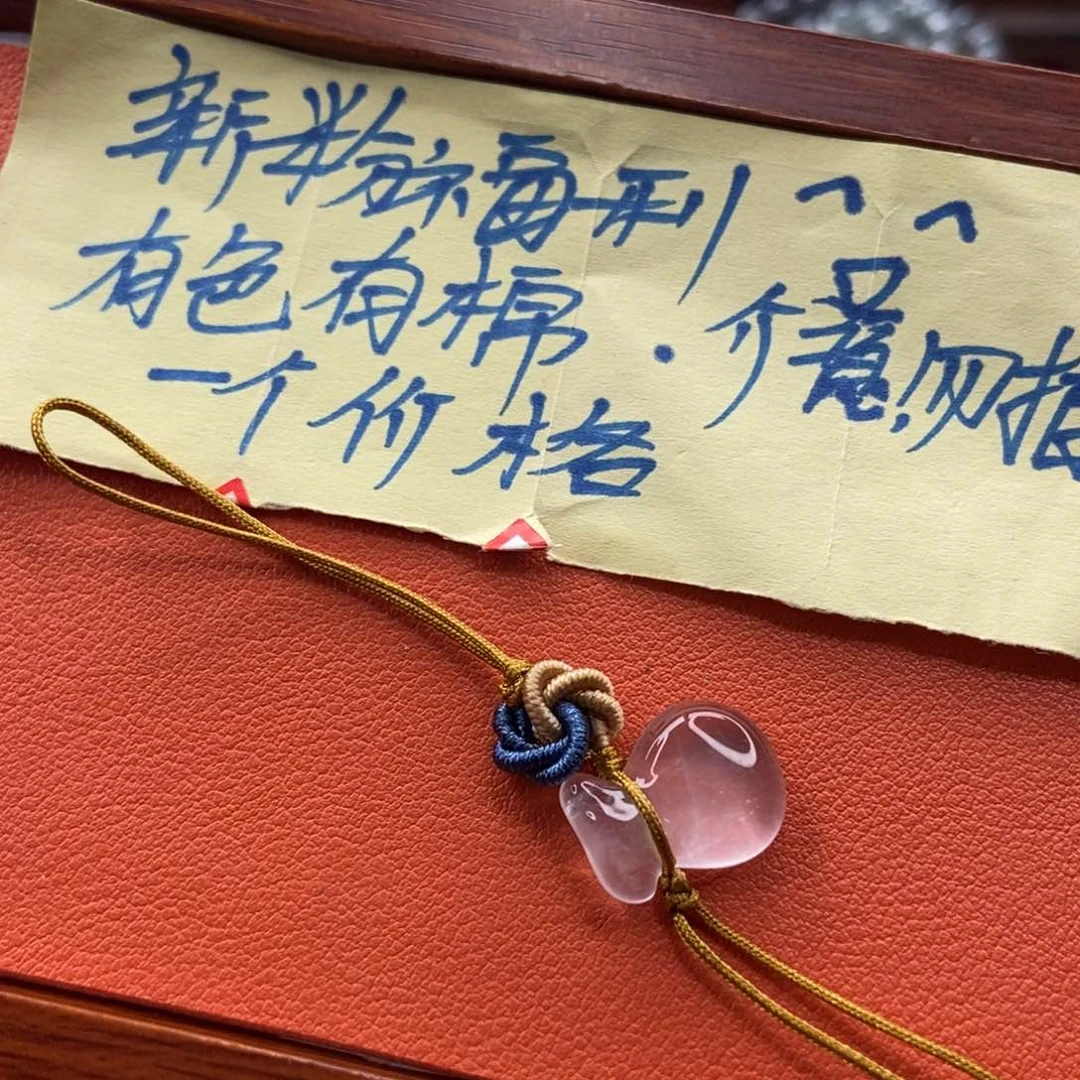 新粉丝福利^^
有色有棉.介意勿拍
一个价格